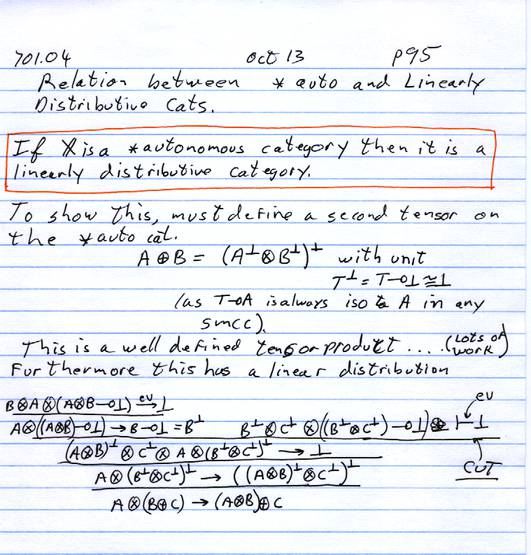 701.04 Oct 13 p95
Relation between * auto and Linearly
Distributive Cats.
If X is a *autonomous category then it is a
linearly distributive category.
To show this, must define a second tensor on
the *auto cat.
A⊕B = (A⊥⊗B⊥)⊥ with unit
T⊥ = T⊸⊥ ≅ ⊥
(as T⊸A is always iso to A in any
smcc).
This is a well defined tensor product .... (Lots of work)
Furthermore this has a linear distribution
B⊗A⊗(A⊗B⊸⊥) ev→ ⊥
A⊗((A⊗B)⊸⊥) → B⊸⊥ = B⊥ B⊥⊗C⊥⊗((B⊥⊗C⊥)⊸⊥) ⊢⊥ ev
(A⊗B)⊥⊗C⊥⊗A⊗(B⊥⊗C⊥)⊥ → ⊥ CUT
A⊗(B⊥⊗C⊥)⊥ → ((A⊗B)⊥⊗C⊥)⊥
A⊗(B⊕C) → (A⊗B)⊕C